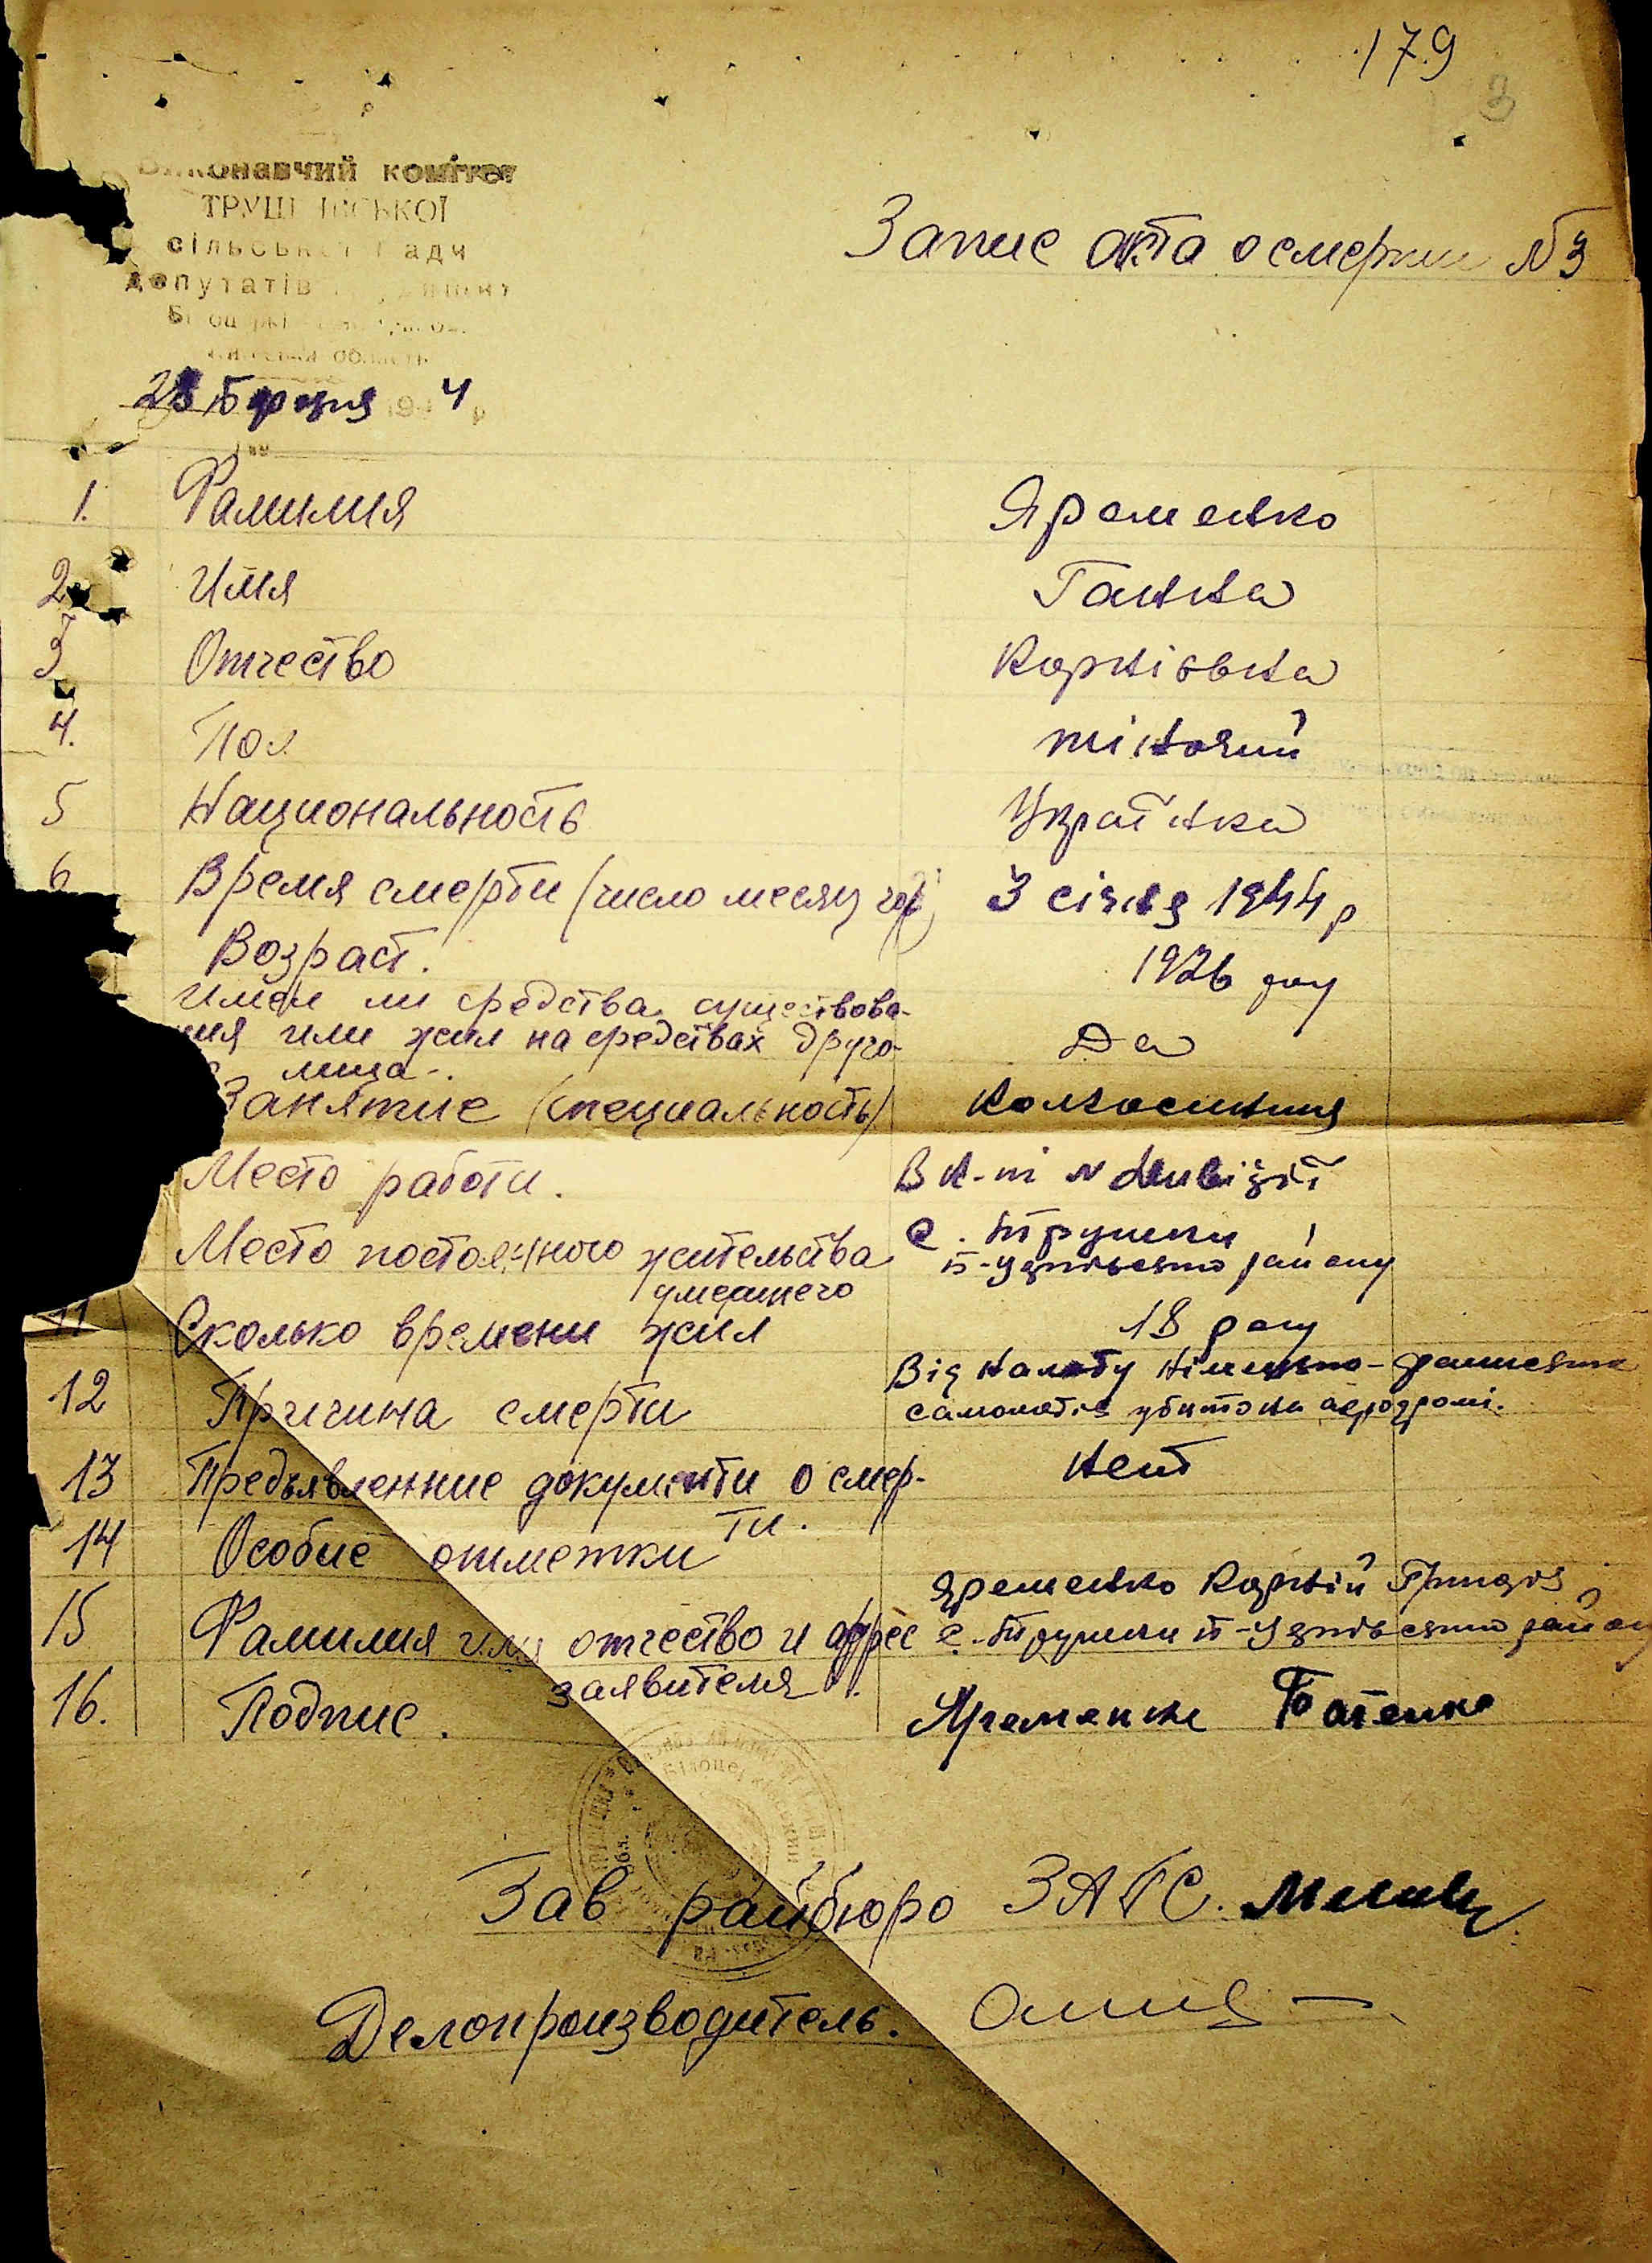 179
3
Виконавчий комітет
ТРУШ ІВСЬКОЇ
сільської Ради
депутатів
область
23 Березня 1944 р
Запис акта о смерти № 3
1. Фамилия Яременко
2. Имя Ганна
3 Отчество Корніївна
4. Пол жіночий
5 Национальность Українка
6 Время смерти (число месяц год) 3 січня 1944 р
Возраст. 1926 року
Имел ли средства существова-
ния или жил на средствах друго-
лица. Да
Занятие (специальность) Колхосниця
Место работи. В к-пі
Место постоянного жительства
умершего
с. Трушки
Б-Церківського району
11 Сколько времени жил 18 року
12 Причина смерти Від нальоту німецько-фашиських
самольотів убито на аеродромі.
13 Предъявленние документи о смер-
ти. Нет
14 Особие отметки
15 Фамилия имя отчество и адрес
заявителя.
Яременко Корній
с. Трушки Б-Церківського району
16. Подпис. Яременко
Зав райбюро ЗАГС.
Делопроизводитель.